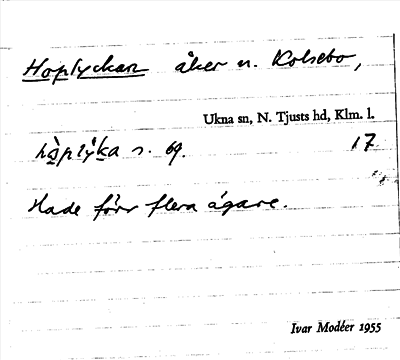 Hoplyckan åker n. Kolsebo,
Ukna sn, N. Tjusts hd, Klm. l.
hòplỳka s. 69. 17
Hade förr flera ägare.
Ivar Modéer 1955